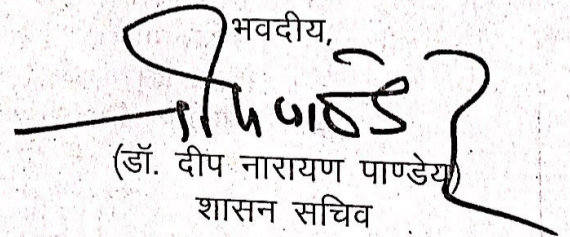 भवदीय,
(डॉ. दीप नारायण पाण्डेय)
शासन सचिव